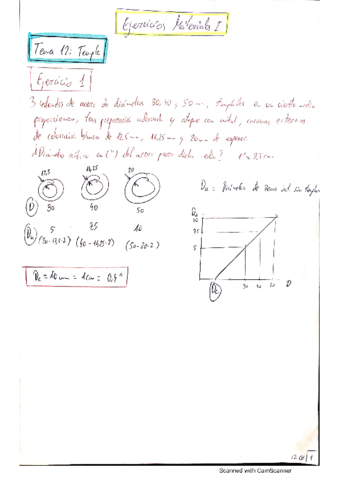 Ejercicios Materiales I
Tema 17: Temple
Ejercicio 1
3 redondos de acero de diámetros 30, 40 y 50 mm, templados en un cierto medio
proporcionan, tras preparación adecuada y ataque con nital, coronas externas
de coloración blanca de 12,5 mm, 16,25 mm y 20 mm de espesor.
¿Diámetro crítico en (") del acero para dicho 1" = 2,5 cm
12,5 16,25 20
D 30 40 50
Du 5 7,5 10
(30-12,5·2) (40-16,25·2) (50-20·2)
Du = diámetro de zona int. sin templar
Du
10
7,5
5
Dc 30 40 50 D
Dc = 10 mm = 1 cm = 0,4"
1
Scanned with CamScanner